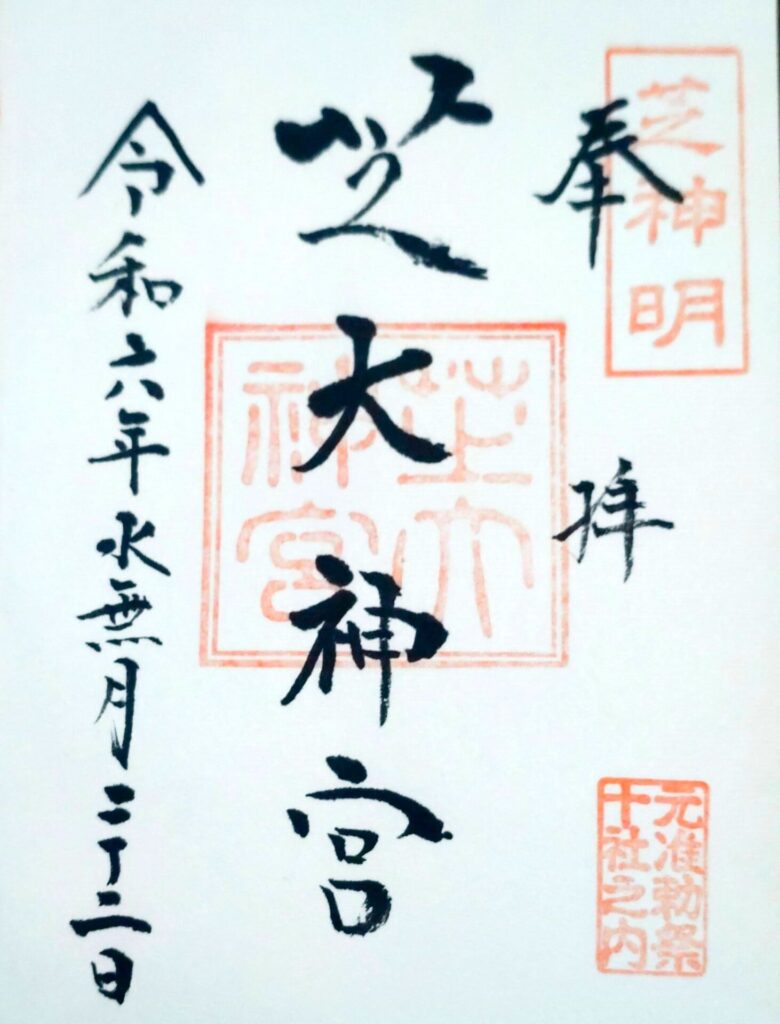 芝神明
奉拝
元准勅祭
十社之内
芝大神宮
芝大
神宮
令和六年水無月二十二日